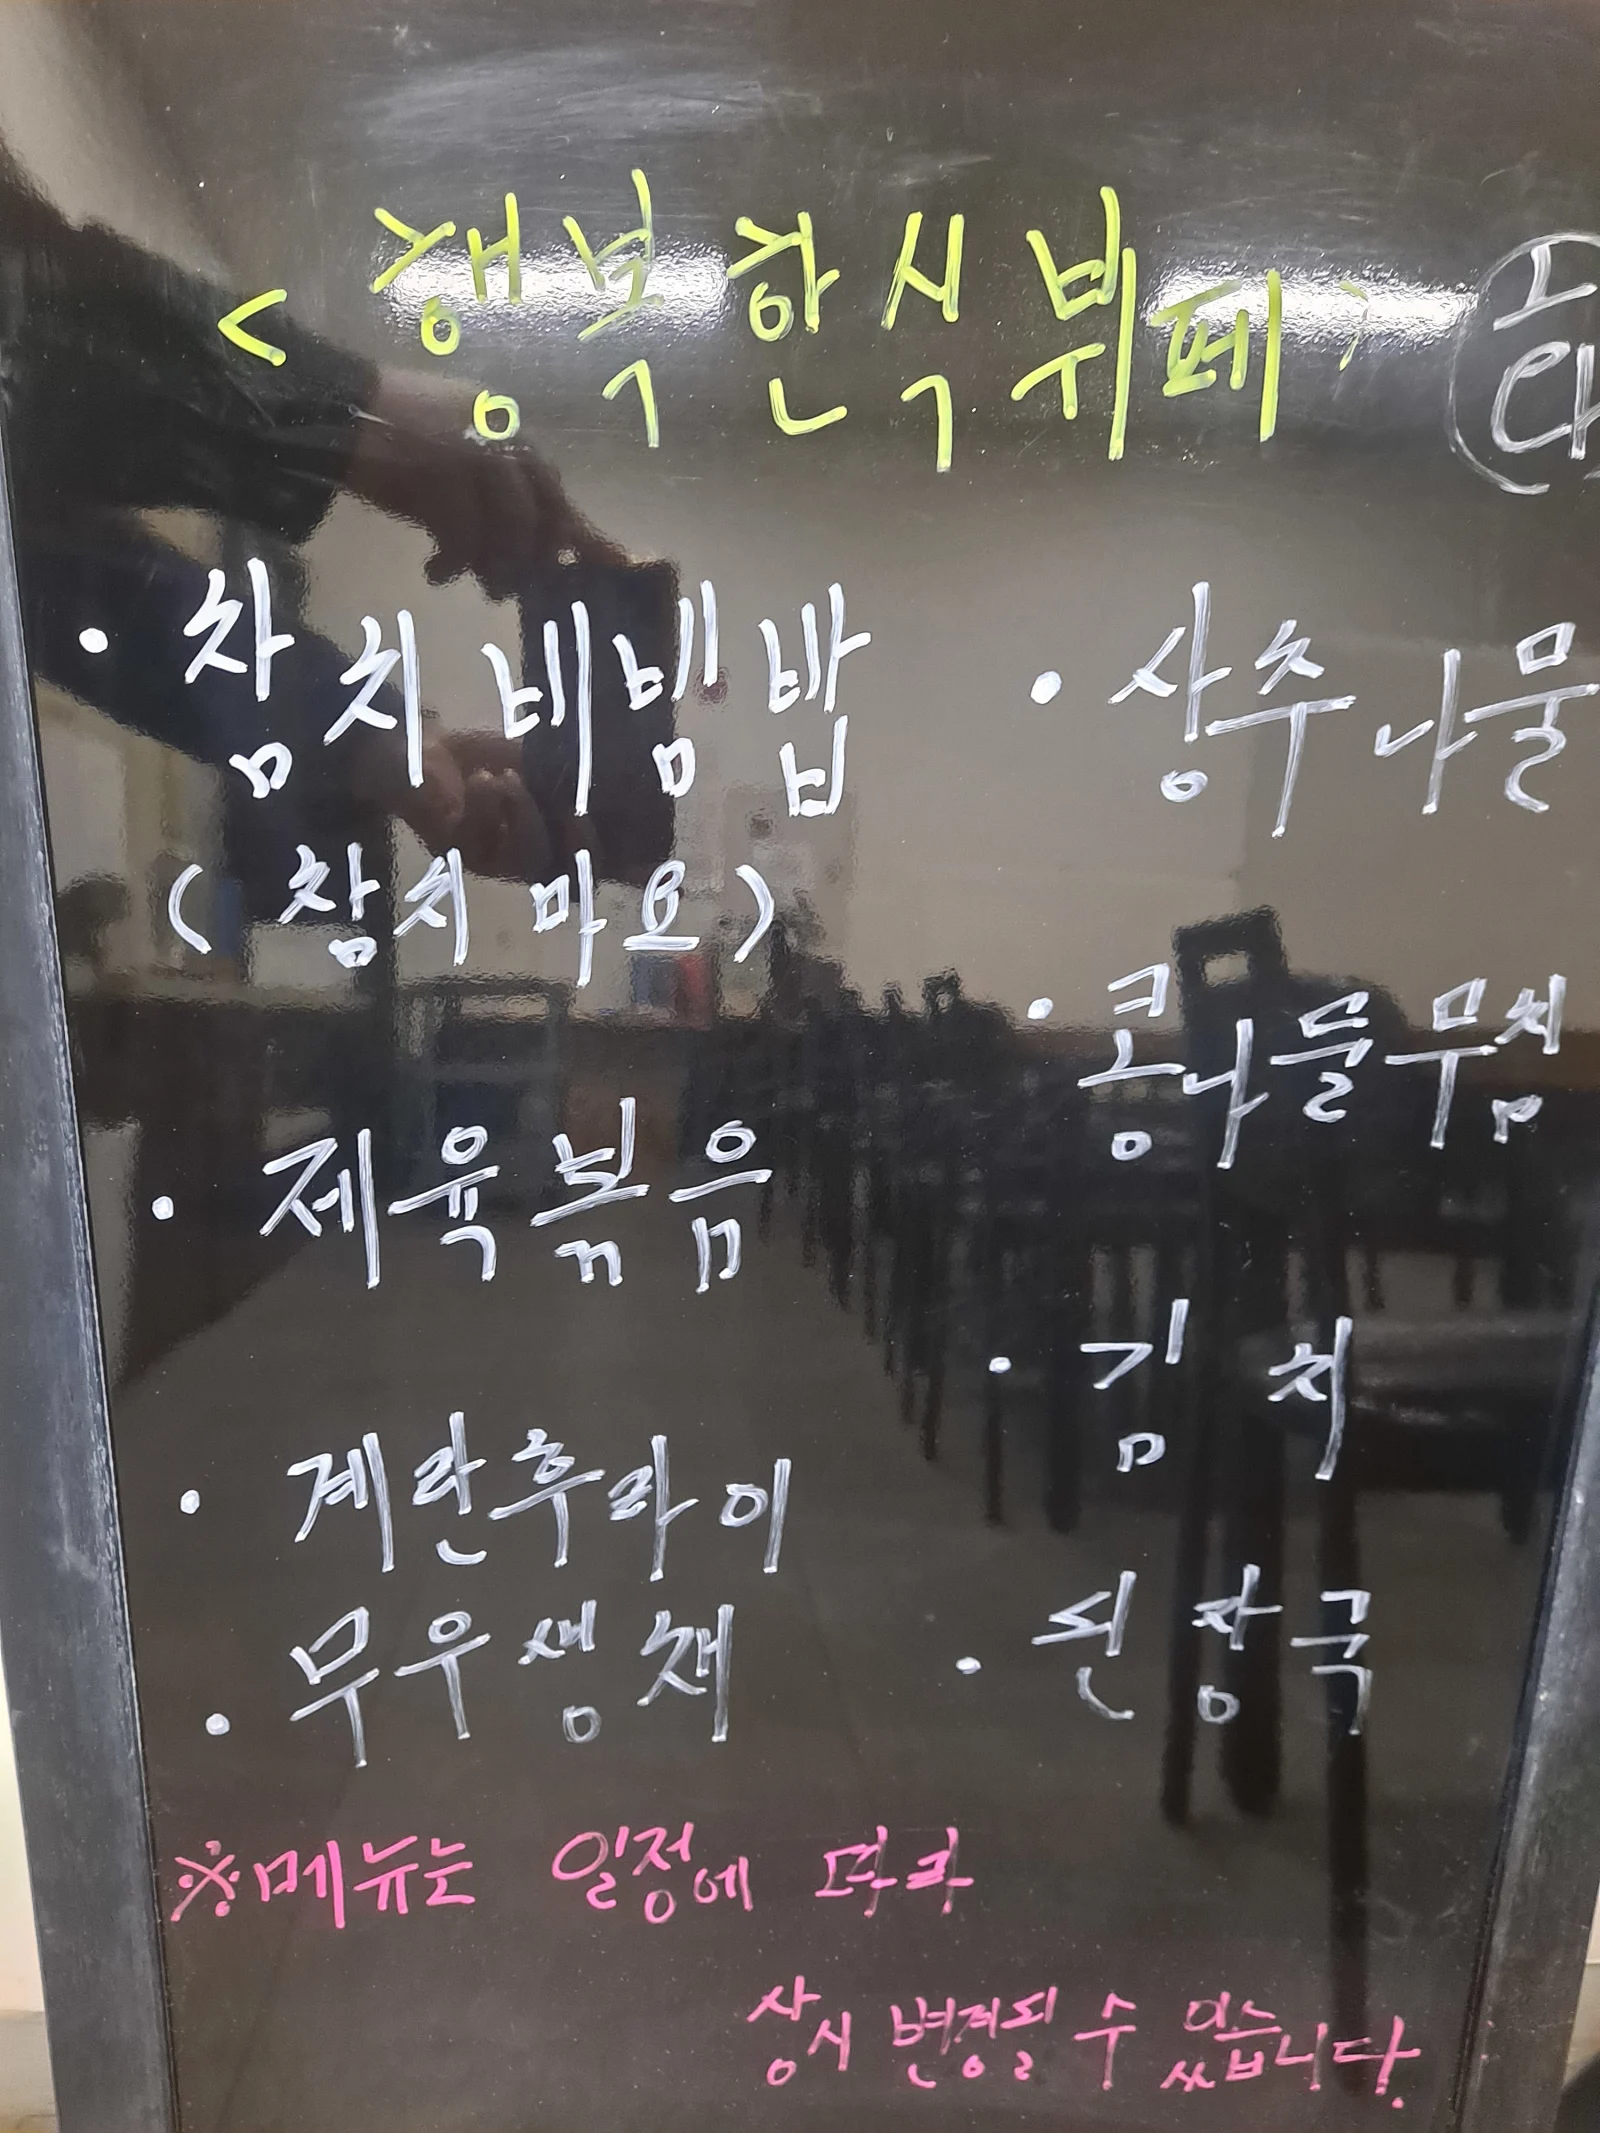 <행복한식뷔페>
· 참치비빔밥
(참치마요)
· 제육볶음
· 계란후라이
· 무우생채
· 상추나물
· 콩나물무침
· 김치
· 된장국
※메뉴는 일정에 따라
상시 변경될 수 있습니다.